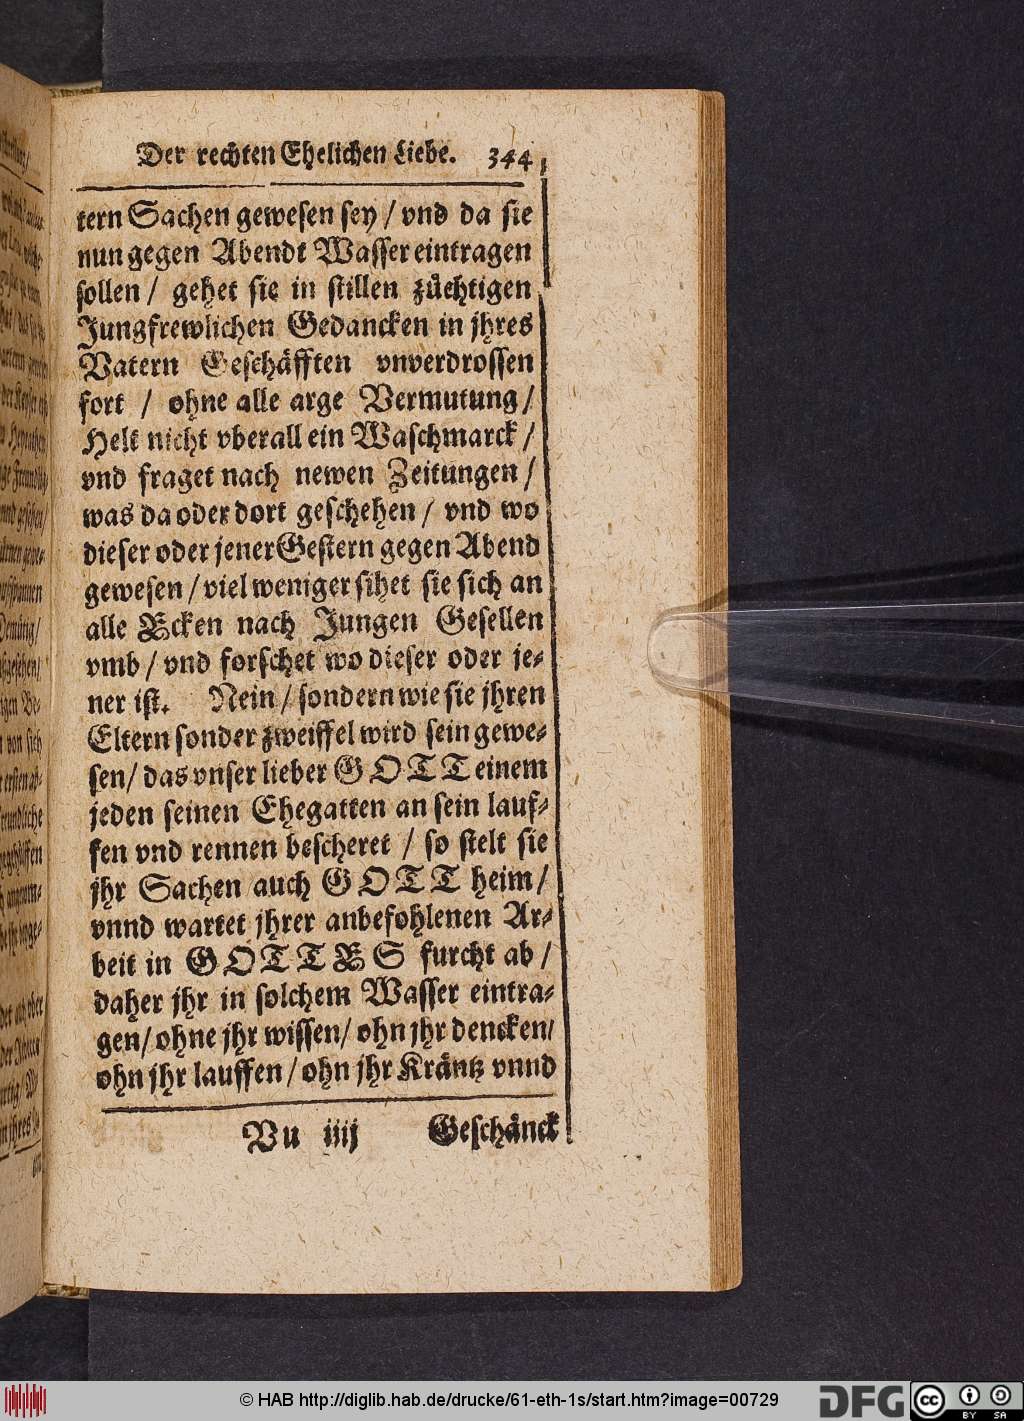 Der rechten Ehelichen Liebe. 344
tern Sachen gewesen sey / vnd da sie
nun gegen Abendt Wasser eintragen
sollen / gehet sie in stillen züchtigen
Jungfrewlichen Gedancken in jhres
Vatern Geschäfften vnverdrossen
fort / ohne alle arge Vermutung /
Helt nicht vberall ein Waschmarck /
vnd fraget nach newen Zeitungen /
was da oder dort geschehen / vnd wo
dieser oder jener Gestern gegen Abend
gewesen / viel weniger sihet sie sich an
alle Ecken nach Jungen Gesellen
vmb / vnd forschet wo dieser oder je-
ner ist. Nein / sondern wie sie jhren
Eltern sonder zweiffel wird sein gewe-
sen / das vnser lieber GOTT einem
jeden seinen Ehegatten an sein lauf-
fen vnd rennen bescheret / so stelt sie
jhr Sachen auch GOTT heim /
vnnd wartet jhrer anbefohlenen Ar-
beit in GOTTES furcht ab /
daher jhr in solchem Wasser eintra-
gen / ohne jhr wissen / ohn jhr dencken /
ohn jhr lauffen / ohn jhr Kräntz vnnd
Vu iiij Geschänck
© HAB http://diglib.hab.de/drucke/61-eth-1s/start.htm?image=00729
DFG
cc BY SA